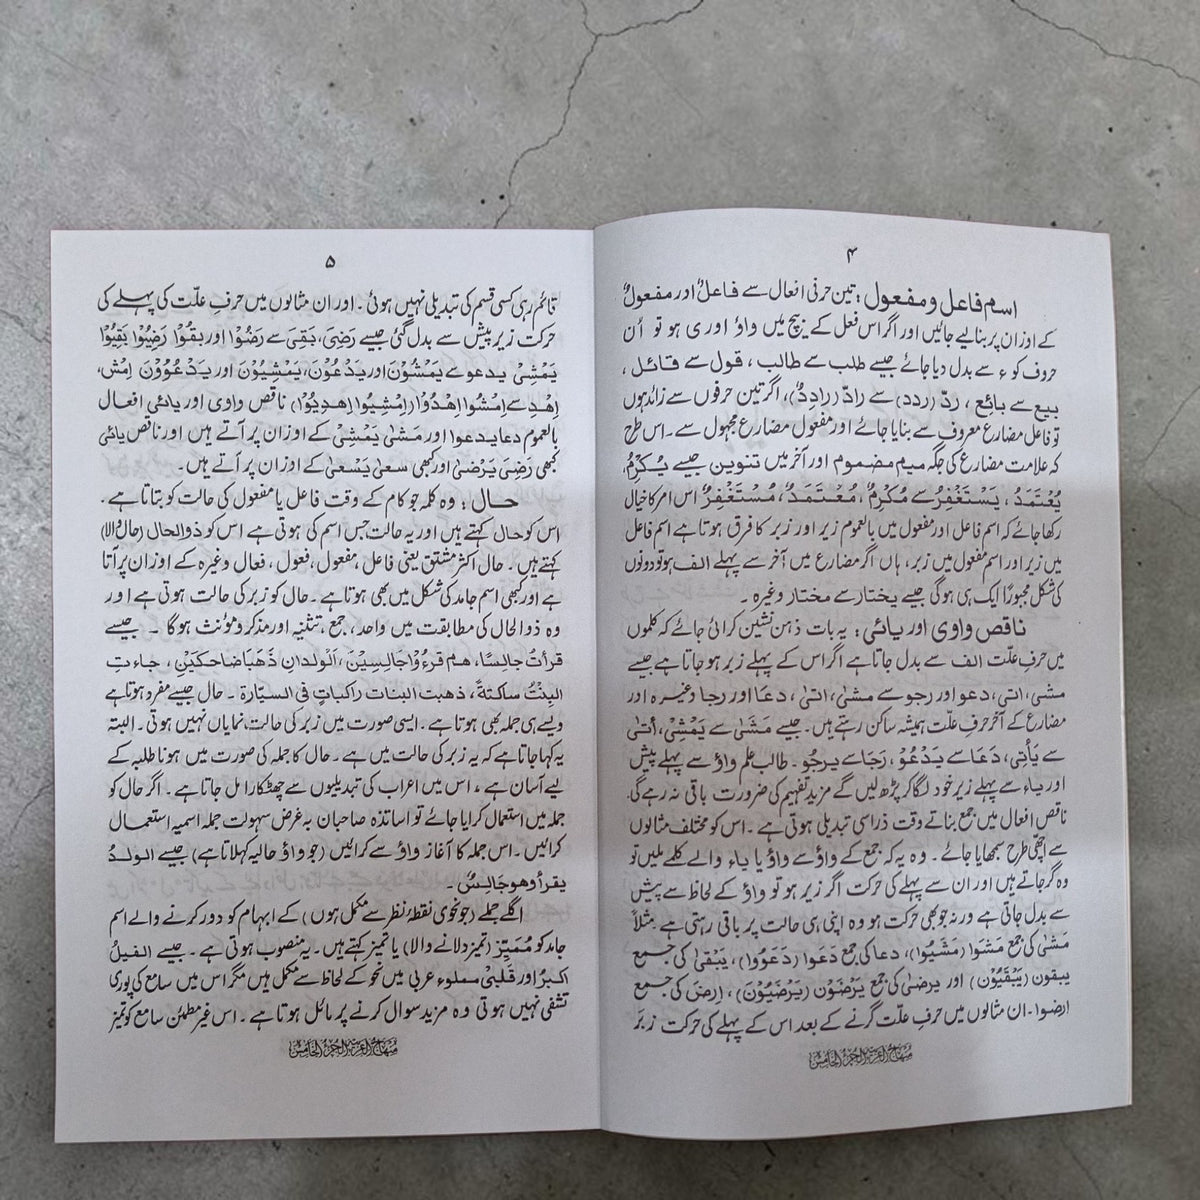 ۴
اسم فاعل و مفعول : تین حرفی افعال سے فاعلٌ اور مفعولٌ
کے اوزان پر بنالیے جائیں اور اگر اس فعل کے بیچ میں واؤ اور ی ہو تو اُن
حروف کو ء سے بدل دیا جائے جیسے طلب سے طالب ، قول سے قائل ،
بیع سے بائع ، ردّ (ردد) سے رادّ (رادِدٌ)، اگر تین حرفوں سے زائد ہوں
تو فاعل مضارع معروف سے بنایا جائے اور مفعول مضارع مجہول سے۔ اس طرح
کہ علامت مضارع کی جگہ میم مضموم اور آخر میں تنوین جیسے یُکْرِمُ،
یُعْتَمَدُ ، یَسْتَغْفِرُ سے مُکْرِمٌ ، مُعْتَمَدٌ ، مُسْتَغْفِرٌ اس امر کا خیال
رکھا جائے کہ اسم فاعل اور مفعول میں بالعموم زیر اور زبر کا فرق ہوتا ہے اسم فاعل
میں زیر اور اسم مفعول میں زبر، ہاں اگر مضارع میں آخر سے پہلے الف ہو تو دونوں
کی شکل مجبوراً ایک ہی ہوگی جیسے یختار سے مختار وغیرہ ۔
ناقص واوی اور یائی : یہ بات ذہن نشین کرائی جائے کہ کلموں
میں حرفِ علّت الف سے بدل جاتا ہے اگر اس کے پہلے زبر ہو جاتا ہے جیسے
مشی، اتی، دعو اور رجو سے مشیٰ، اتیٰ ، دعَا اور رجا وغیرہ اور
مضارع کے آخر حرفِ علّت ہمیشہ ساکن رہتے ہیں۔ جیسے مَشَیٰ سے یَمْشِیْ، أتیٰ
سے یَأتِی ، دَعَا سے یَدْعُوْ ، رَجَا سے یرجُو ۔ طالب علم واؤ سے پہلے پیش
اور یاء سے پہلے زیر خود لگا کر پڑھ لیں گے مزید تفہیم کی ضرورت باقی نہ رہے گی
ناقص افعال میں جمع بناتے وقت ذرا سی تبدیلی ہوتی ہے ۔ اس کو مختلف مثالوں
سے اچھی طرح سمجھایا جائے ۔ وہ یہ کہ جمع کے واؤ سے واؤ یا یاء والے کلمے ملیں تو
وہ گر جاتے ہیں اور ان سے پہلے کی حرکت اگر زیر ہو تو واؤ کے لحاظ سے پیش
سے بدل جاتی ہے ورنہ جو بھی حرکت ہو وہ اپنی ہی حالت پر باقی رہتی ہے مثلاً
مَشیٰ کی جمع مَشَوا (مَشَیُوا) ، دعا کی جمع دَعَوا (دَعَوُوا)، یَبْقیٰ کی جمع
یبقون (یَبْقَیُوْن) اور یرضیٰ کی جمع یَرْضَوْن (یَرْضَیُوْنَ) ، اِرضَ کی جمع
ارضوا۔ ان مثالوں میں حرفِ علّت گرنے کے بعد اس کے پہلے کی حرکت زبرَ
منہاج العربیۃ الجزء الخامس
۵
قائم رہی کسی قسم کی تبدیلی نہیں ہوئی ۔ اور ان مثالوں میں حرفِ علّت کی پہلے کی
حرکت زیر پیش سے بدل گئی جیسے رَضِیَ، بَقِیَ سے رَضُوْا اور بَقُوْا رَضِیُوْا بَقِیُوْا
یَمْشِیْ یدعو سے یَمْشُوْن اور یَدْعُوْنَ، یَمْشِیُوْنَ اور یَدْعُوُوْنَ اِمْشِ،
اِھْدِ سے اِمْشُوا اِھْدُوْا (اِمْشِیُوا اِھْدِیُوْا) ناقص واوی اور یائی افعال
بالعموم دعا یدعوا اور مَشیٰ یَمْشِیْ کے اوزان پر آتے ہیں اور ناقص یائی
کبھی رَضِیَ یَرْضیٰ اور کبھی سعیٰ یَسْعیٰ کے اوزان پر آتے ہیں ۔
حال : وہ کلمہ جو کام کے وقت فاعل یا مفعول کی حالت کو بتاتا ہے ۔
اس کو حال کہتے ہیں اور یہ حالت جس اسم کی ہوتی ہے اس کو ذوالحال (حال والا)
کہتے ہیں ۔ حال اکثر مشتق یعنی فاعل ، مفعول ، فعول ، فعال وغیرہ کے اوزان پر آتا
ہے اور کبھی اسم جامد کی شکل میں بھی ہوتا ہے ۔ حال کو زبر کی حالت ہوتی ہے اور
وہ ذوالحال کی مطابقت میں واحد ، جمع ، تثنیہ اور مذکر و مؤنث ہوگا ۔ جیسے
قرأتُ جالسًا، ھم قرءُوا جَالِسِیْنَ، اَلْولدانِ ذَھَبَا ضَاحکَیْنِ ، جاءتِ
البِنْتُ ساکتةً ، ذھبت البنات راکباتٍ فی السیّارة ۔ حال جیسے مفرد ہوتا ہے
ویسے ہی جملہ بھی ہوتا ہے ۔ ایسی صورت میں زبر کی حالت نمایاں نہیں ہوتی ۔ البتہ
یہ کہا جاتا ہے کہ یہ زبر کی حالت میں ہے ۔ حال کا جملہ کی صورت میں ہونا طلبہ کے
لیے آسان ہے ، اس میں اعراب کی تبدیلیوں سے چھٹکارا مل جاتا ہے ۔ اگر حال کو
جملہ میں استعمال کرایا جائے تو اساتذہ صاحبان بہ غرض سہولت جملہ اسمیہ استعمال
کرائیں ۔ اس جملہ کا آغاز واؤ سے کرائیں (جو واؤ حالیہ کہلاتا ہے) جیسے الولدُ
یقرأ وھو جَالِسٌ ۔
اگلے جملے (جو نحوی نقطۂ نظر سے مکمل ہوں) کے ابہام کو دور کرنے والے اسم
جامد کو مُمَیِّز (تمیز دلانے والا) یا تمیز کہتے ہیں۔ یہ منصوب ہوتی ہے ۔ جیسے الفیلُ
اکبرُ اور قلبیْ مملوء عربی میں نحو کے لحاظ سے مکمل ہیں مگر اس میں سامع کی پوری
تشفی نہیں ہوتی وہ مزید سوال کرنے پر مائل ہوتا ہے ۔ اس غیر مطمئن سامع کو تمیز
منہاج العربیۃ الجزء الخامس